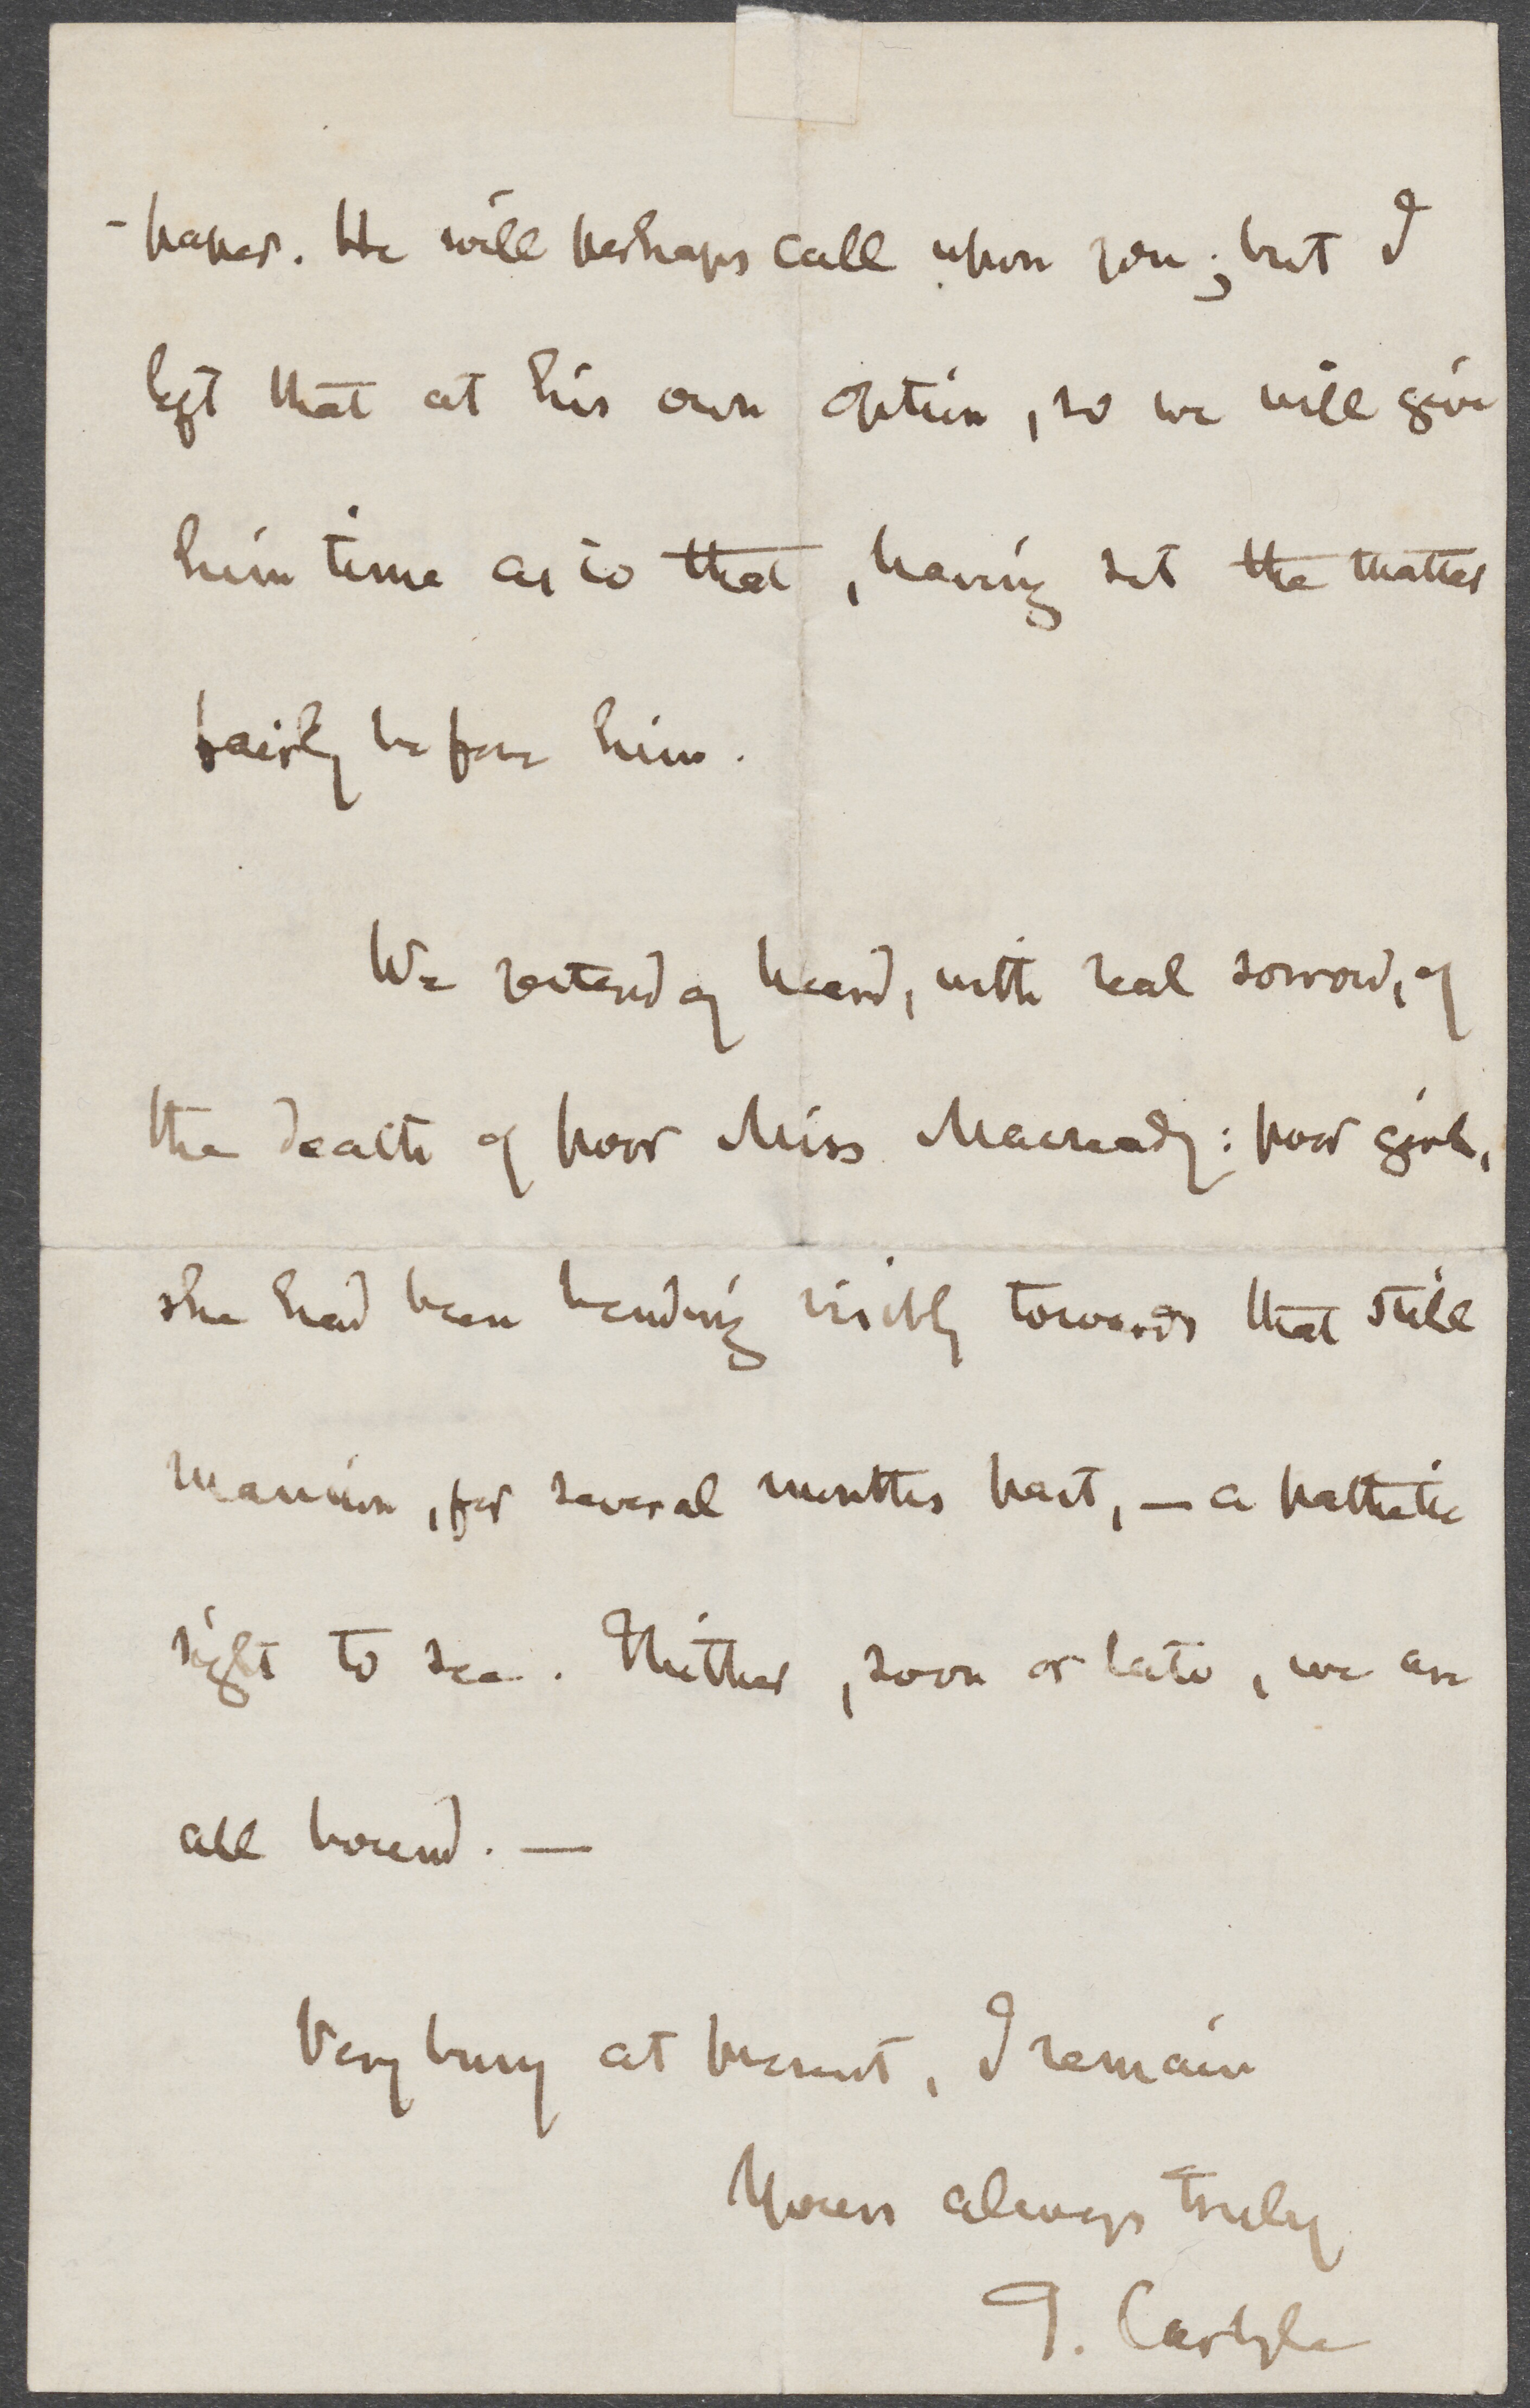 -paper. He will perhaps call upon you; but I
left that at his own option, so we will give
him time as to that, having set the matter
fairly before him.
We yesterday heard, with real sorrow, of
the death of poor Miss Macready: poor girl,
she had been tending visibly towards that still
mansion, for several months past, — a pathetic
sight to see. Thither, soon or late, we are
all bound. —
Very busy at present, I remain
Yours always truly
T. Carlyle